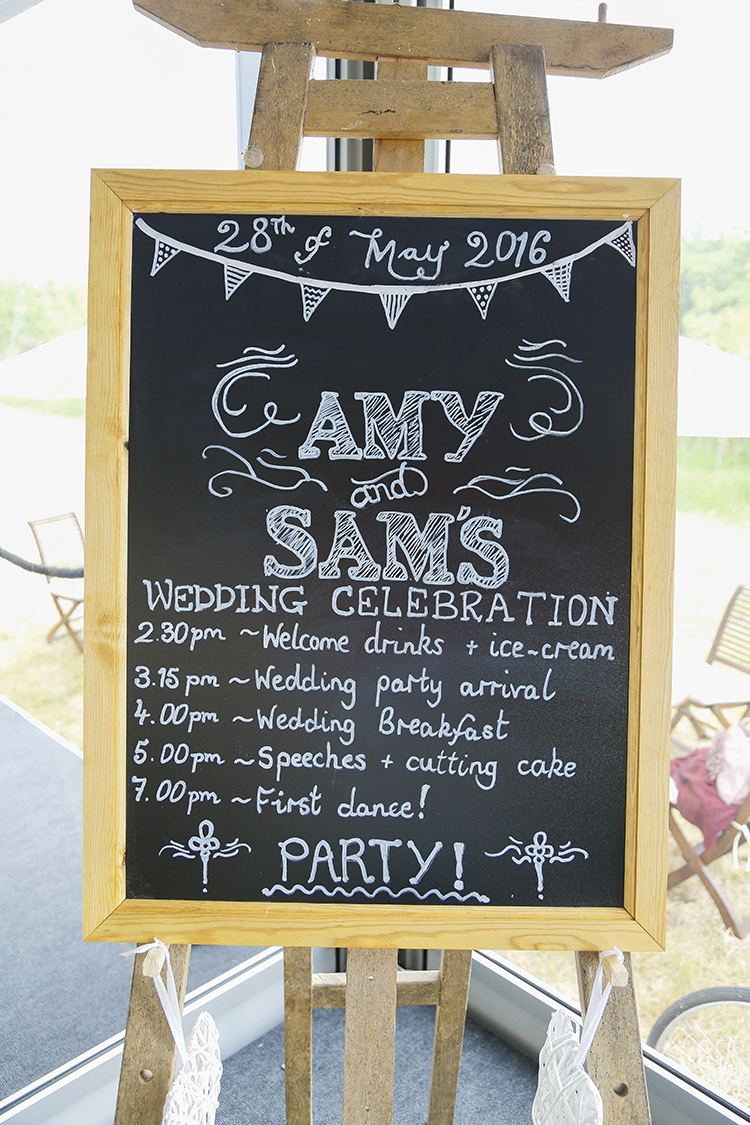 28th of May 2016
AMY
and
SAM'S
WEDDING CELEBRATION
2.30pm ~ Welcome drinks + ice-cream
3.15pm ~ Wedding party arrival
4.00pm ~ Wedding Breakfast
5.00pm ~ Speeches + cutting cake
7.00pm ~ First dance!
PARTY!